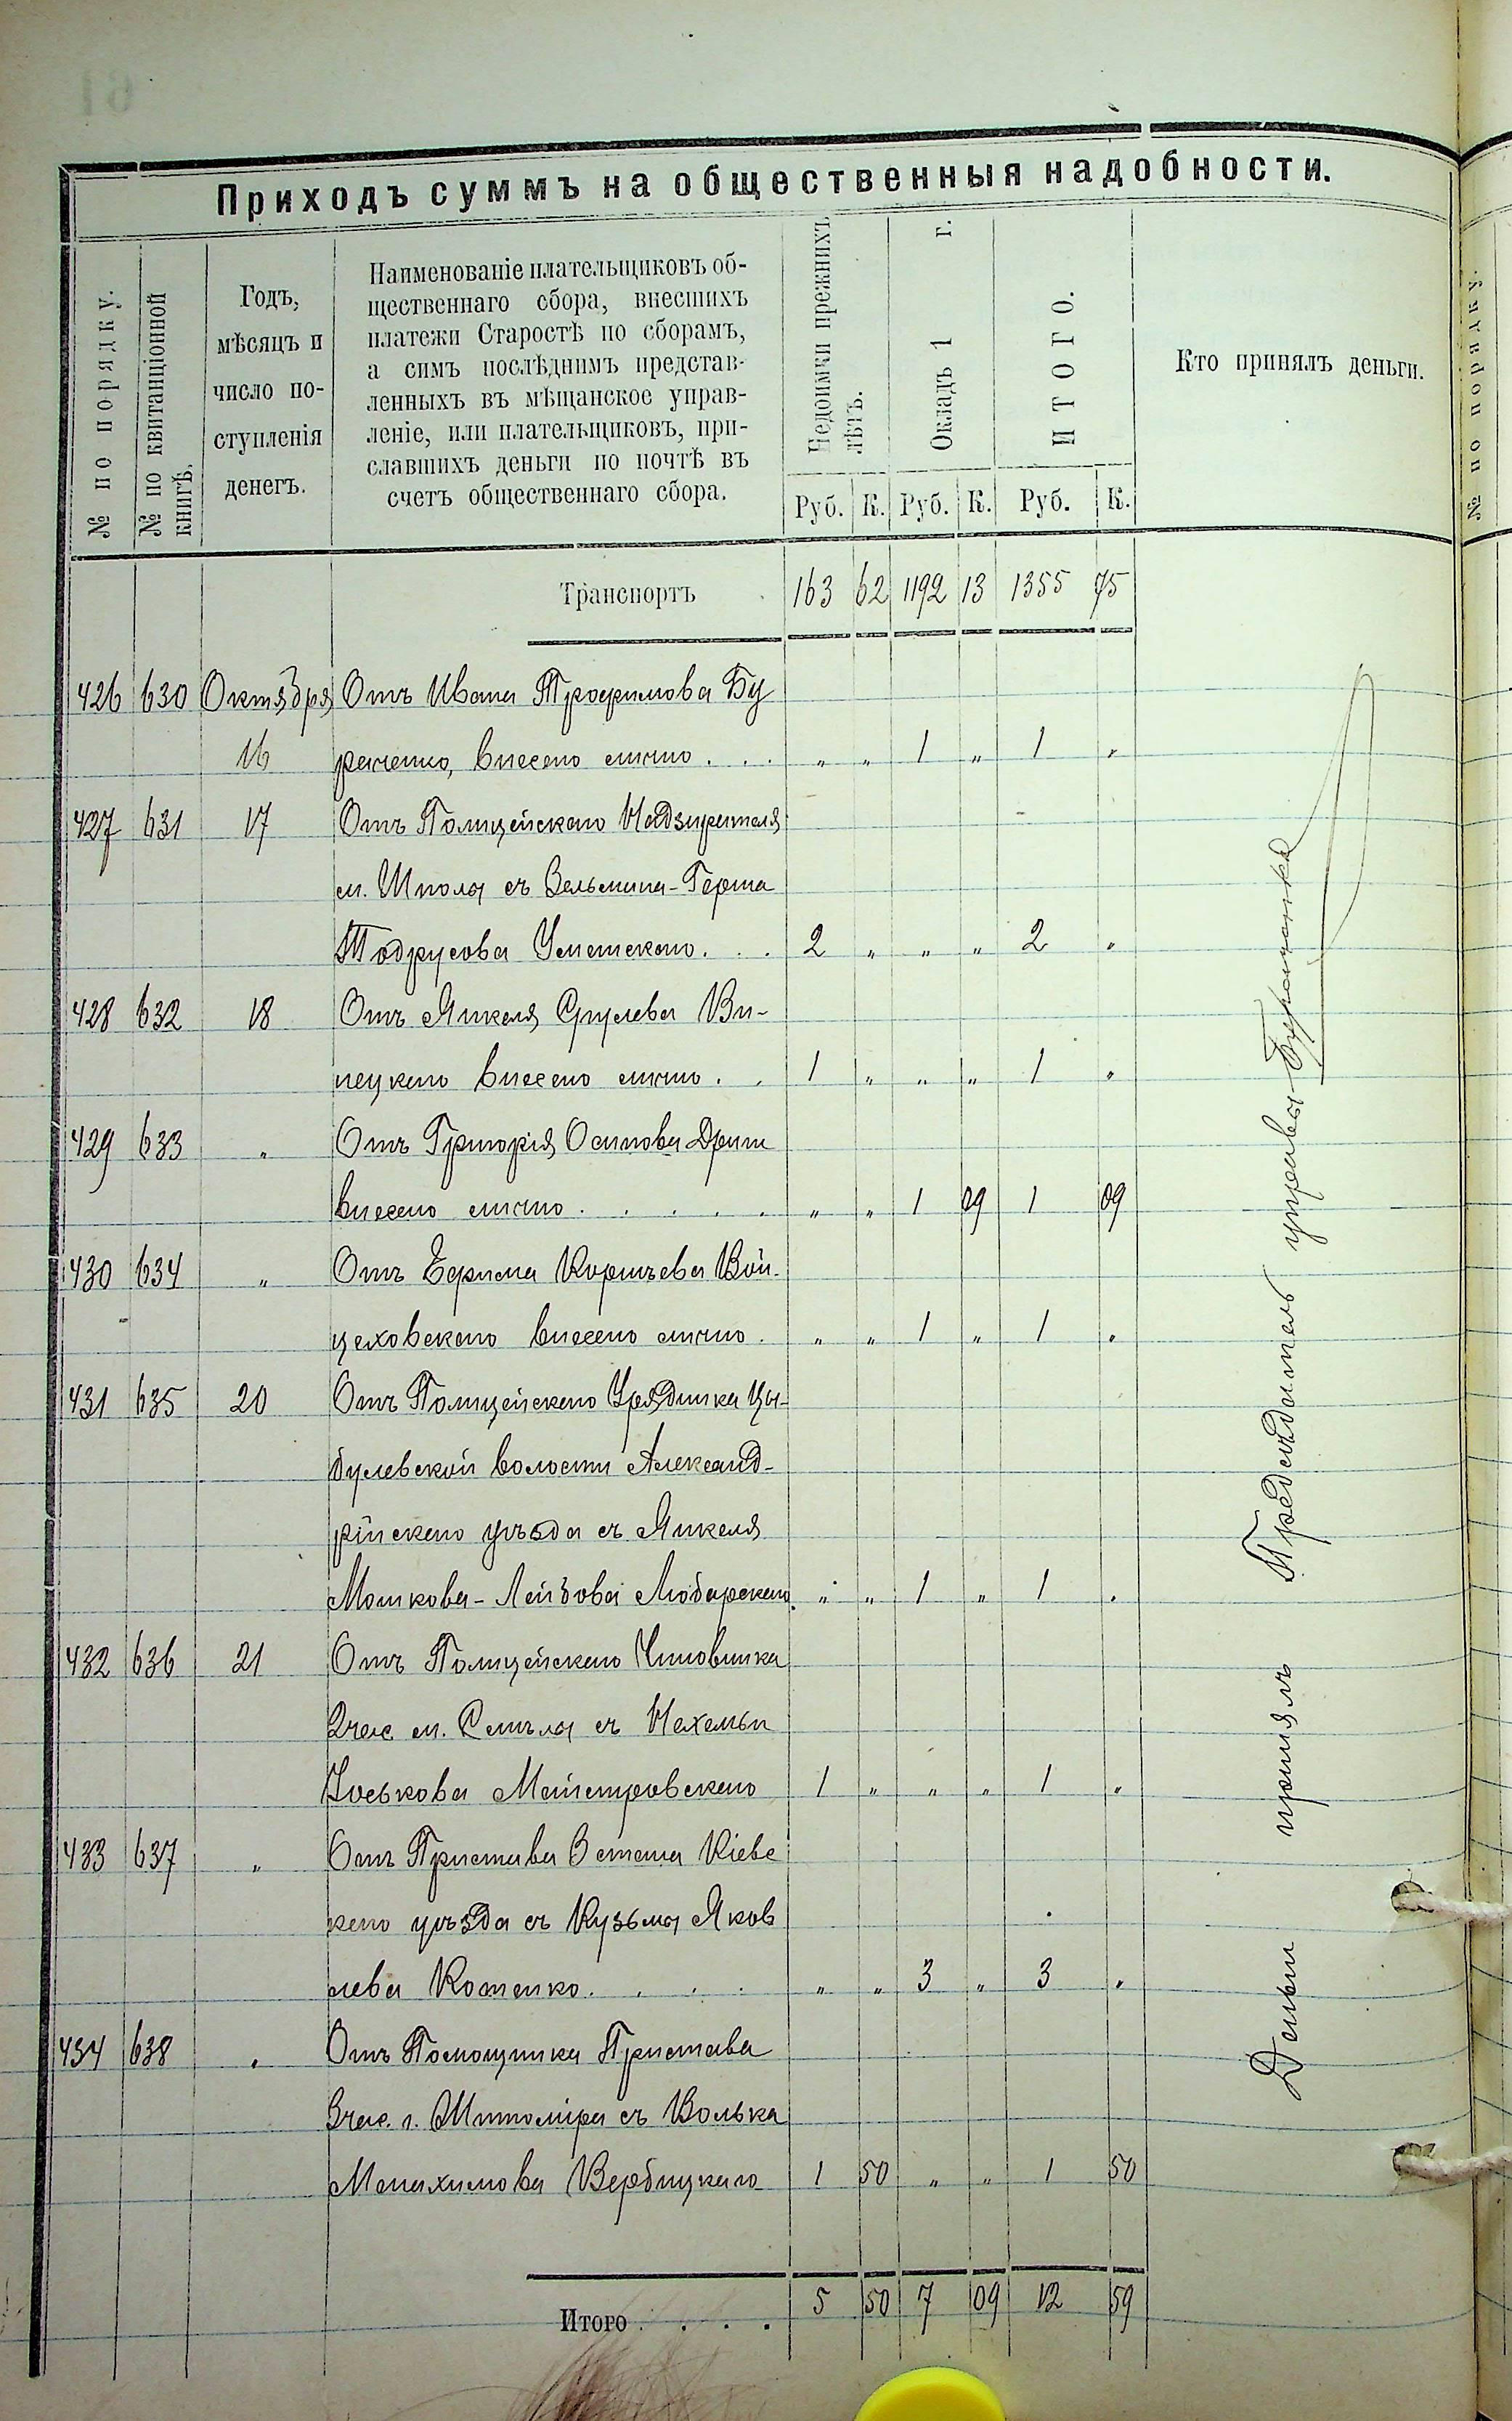 Приходъ суммъ на общественныя надобности.
№ по порядку.
№ по квитанціонной
книгѣ.
Годъ,
мѣсяцъ и
число по-
ступленія
денегъ.
Наименованіе плательщиковъ об-
щественнаго сбора, внесшихъ
платежи Старостѣ по сборамъ,
а симъ послѣднимъ представ-
ленныхъ въ мѣщанское управ-
леніе, или плательщиковъ, при-
славшихъ деньги по почтѣ въ
счетъ общественнаго сбора.
Недоимки прежнихъ
лѣтъ.
Окладъ 1 г.
ИТОГО.
Кто принялъ деньги.
Руб. К. Руб. К. Руб. К.
Транспортъ 163 62 1192 13 1355 75
426 630 Октября Отъ Ивана Трофимова Бу
16 раченко, внесено лично . . . „ „ 1 „ 1 „
427 631 17 Отъ Полицейскаго Надзирателя
м. Шполы съ Зельмана-Герша
Тодрусова Уманскаго . . . 2 „ „ „ 2 „
428 632 18 Отъ Янкеля Сруlева Ви-
ницкаго внесено лично . . 1 „ „ „ 1 „
429 633 „ Отъ Григорія Осипова
внесено лично . . . . . „ „ 1 09 1 09
430 634 „ Отъ Ефима Вой-
цеховскаго внесено лично . „ „ 1 „ 1 „
431 635 20 Отъ Полицейскаго Урядника Цы-
булевской волости Александ-
рійскаго уѣзда съ Янкеля
Мошкова-Лейбова Любарскаго „ „ 1 „ 1 „
432 636 21 Отъ Полицейскаго Чиновника
2 час. м. Смѣлы съ
Іоськова Майстровскаго 1 „ „ „ 1 „
433 637 „ Отъ Пристава 3 стана Кіевс
каго уѣзда съ Кузьмы Яков
лева Котенко . . . . „ „ 3 „ 3 „
434 638 „ Отъ Помощника Пристава
3 час. г. Житоміра съ Волька
Менахимова Вербицкаго 1 50 „ „ 1 50
Итого . . . . 5 50 7 09 12 59
Деньги принялъ Предсѣдатель управы
№ по порядку.